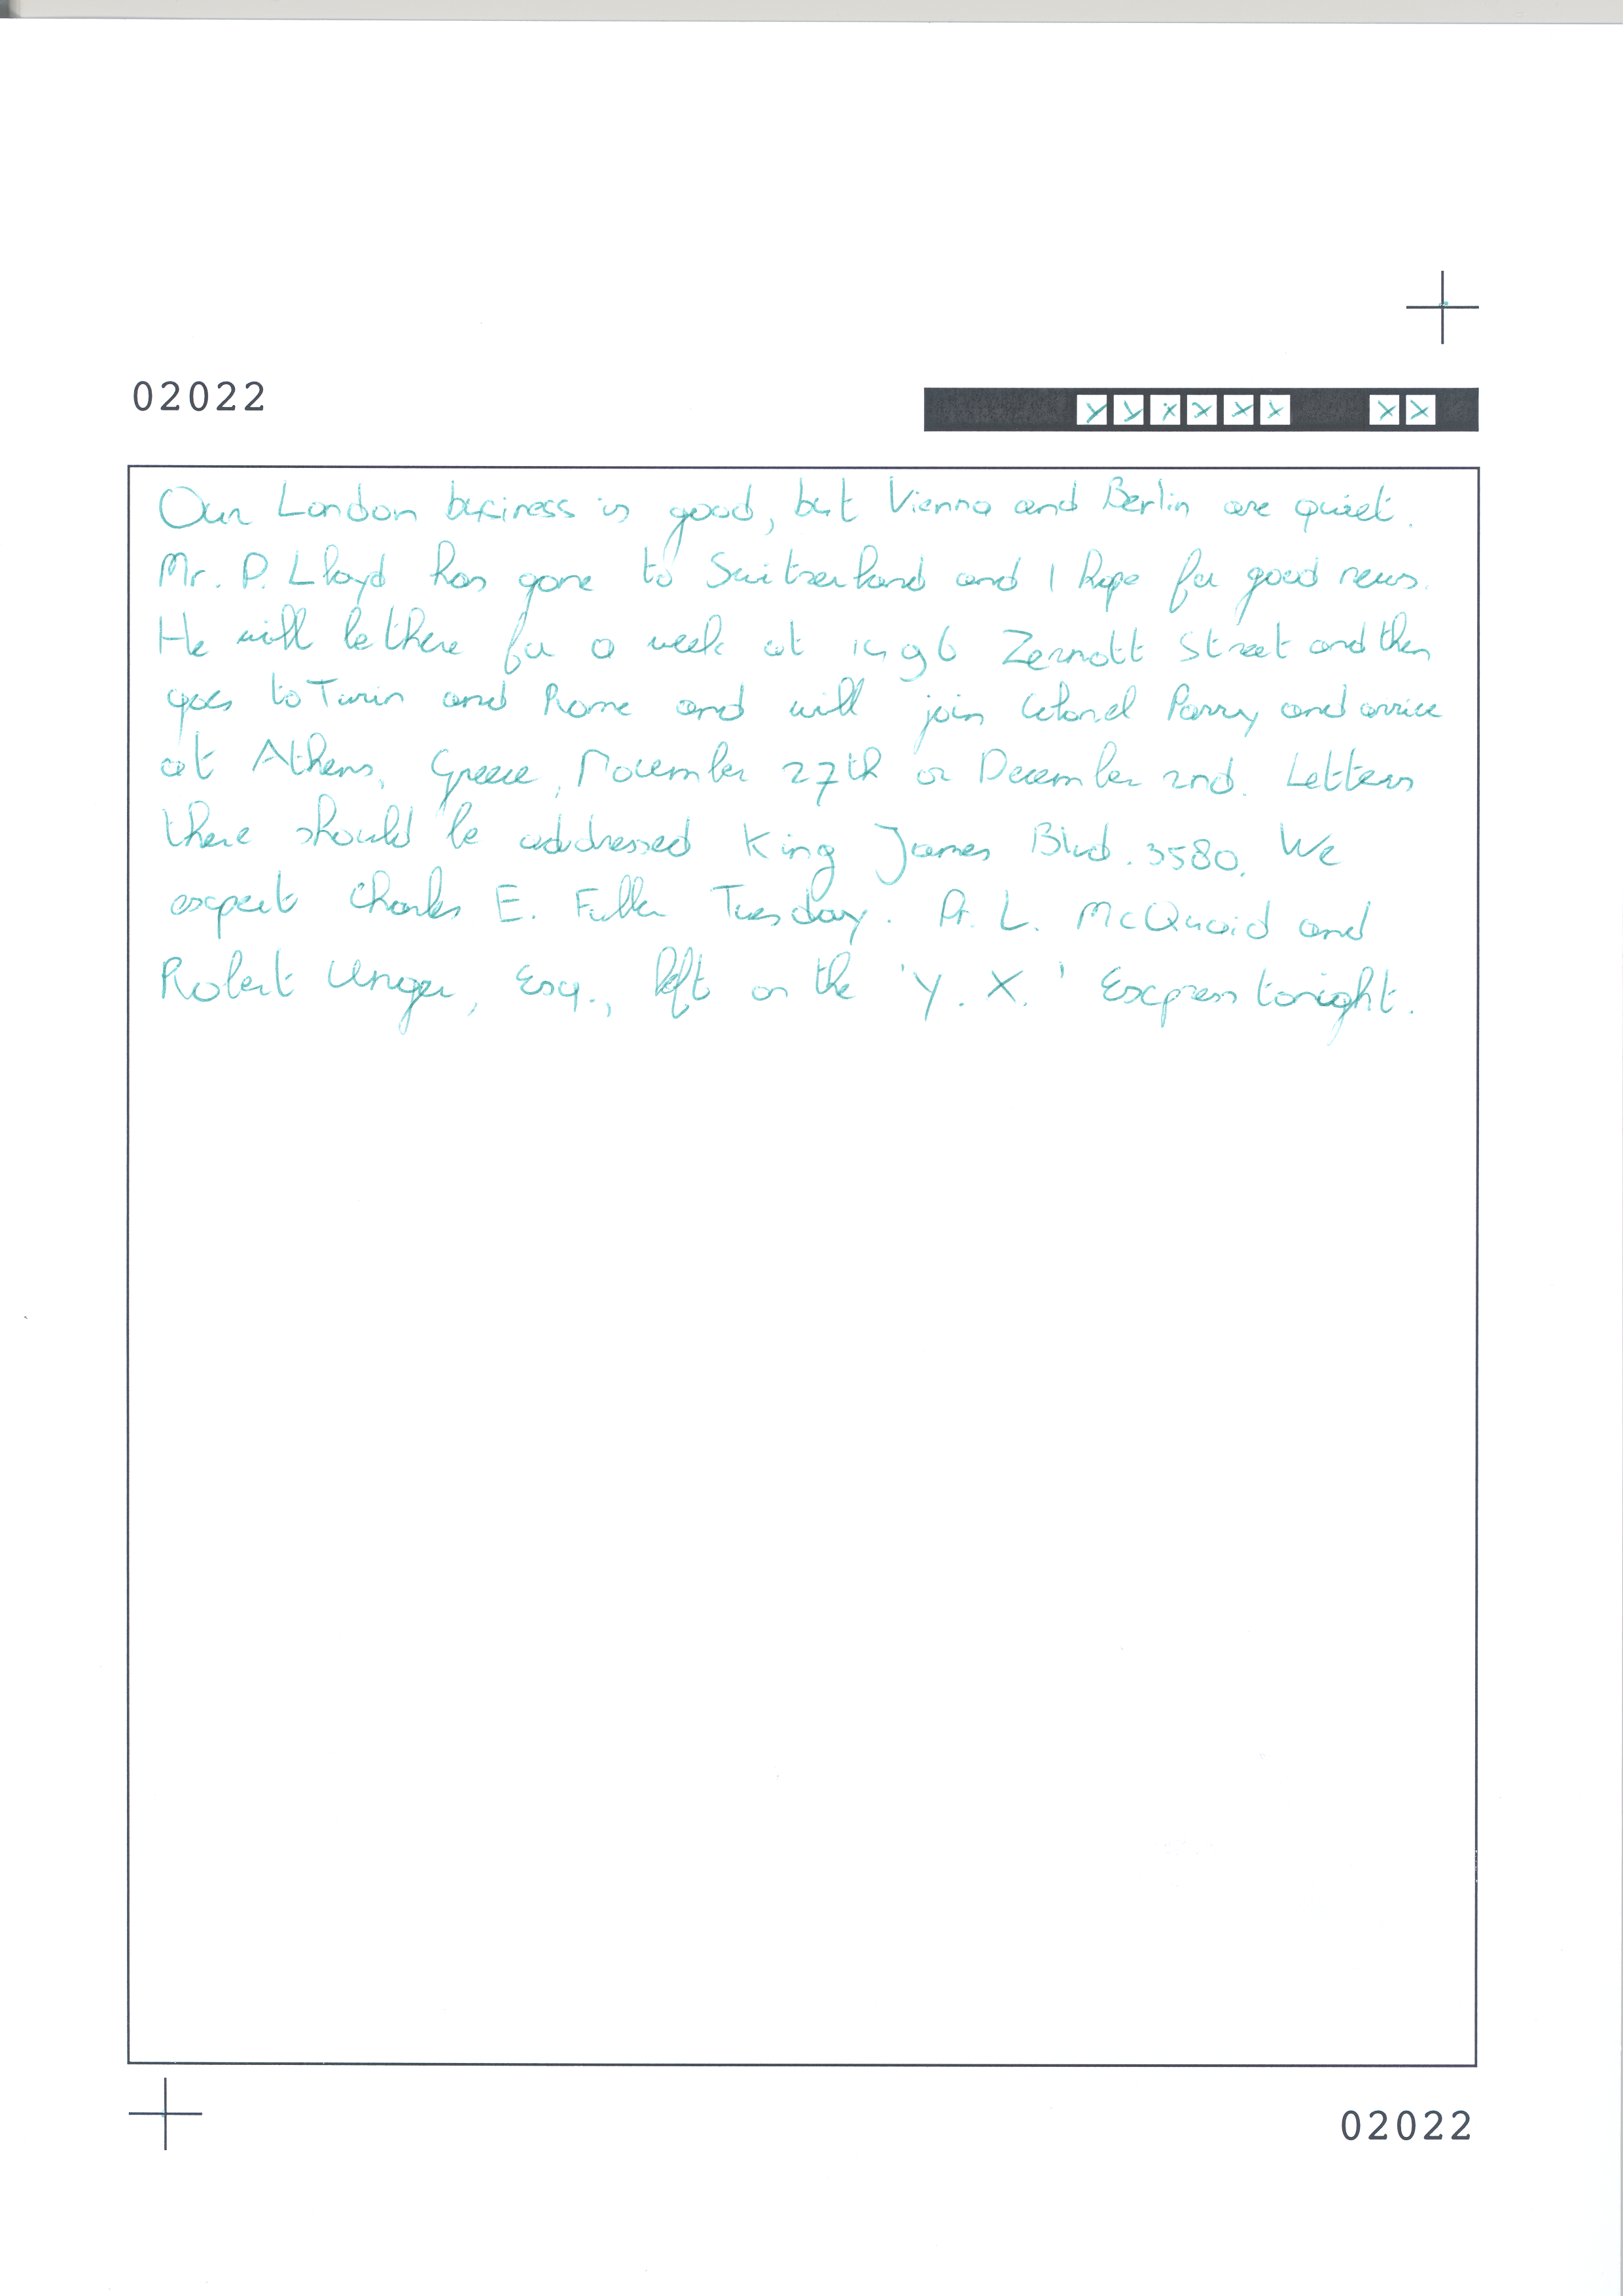 02022
Our London business is good, but Vienna and Berlin are quiet.
Mr. P. Lloyd has gone to Switzerland and I hope for good news.
He will be there for a week at 1496 Zermott Street and then
goes to Turin and Rome and will join Colonel Parry and arrive
at Athens, Greece, November 27th or December 2nd. Letters
there should be addressed King James Blvd. 3580. We
expect Charles E. Fuller Tuesday. Dr. L. McQuaid and
Robert Unger, Esq., left on the 'Y. X.' Express tonight.
02022